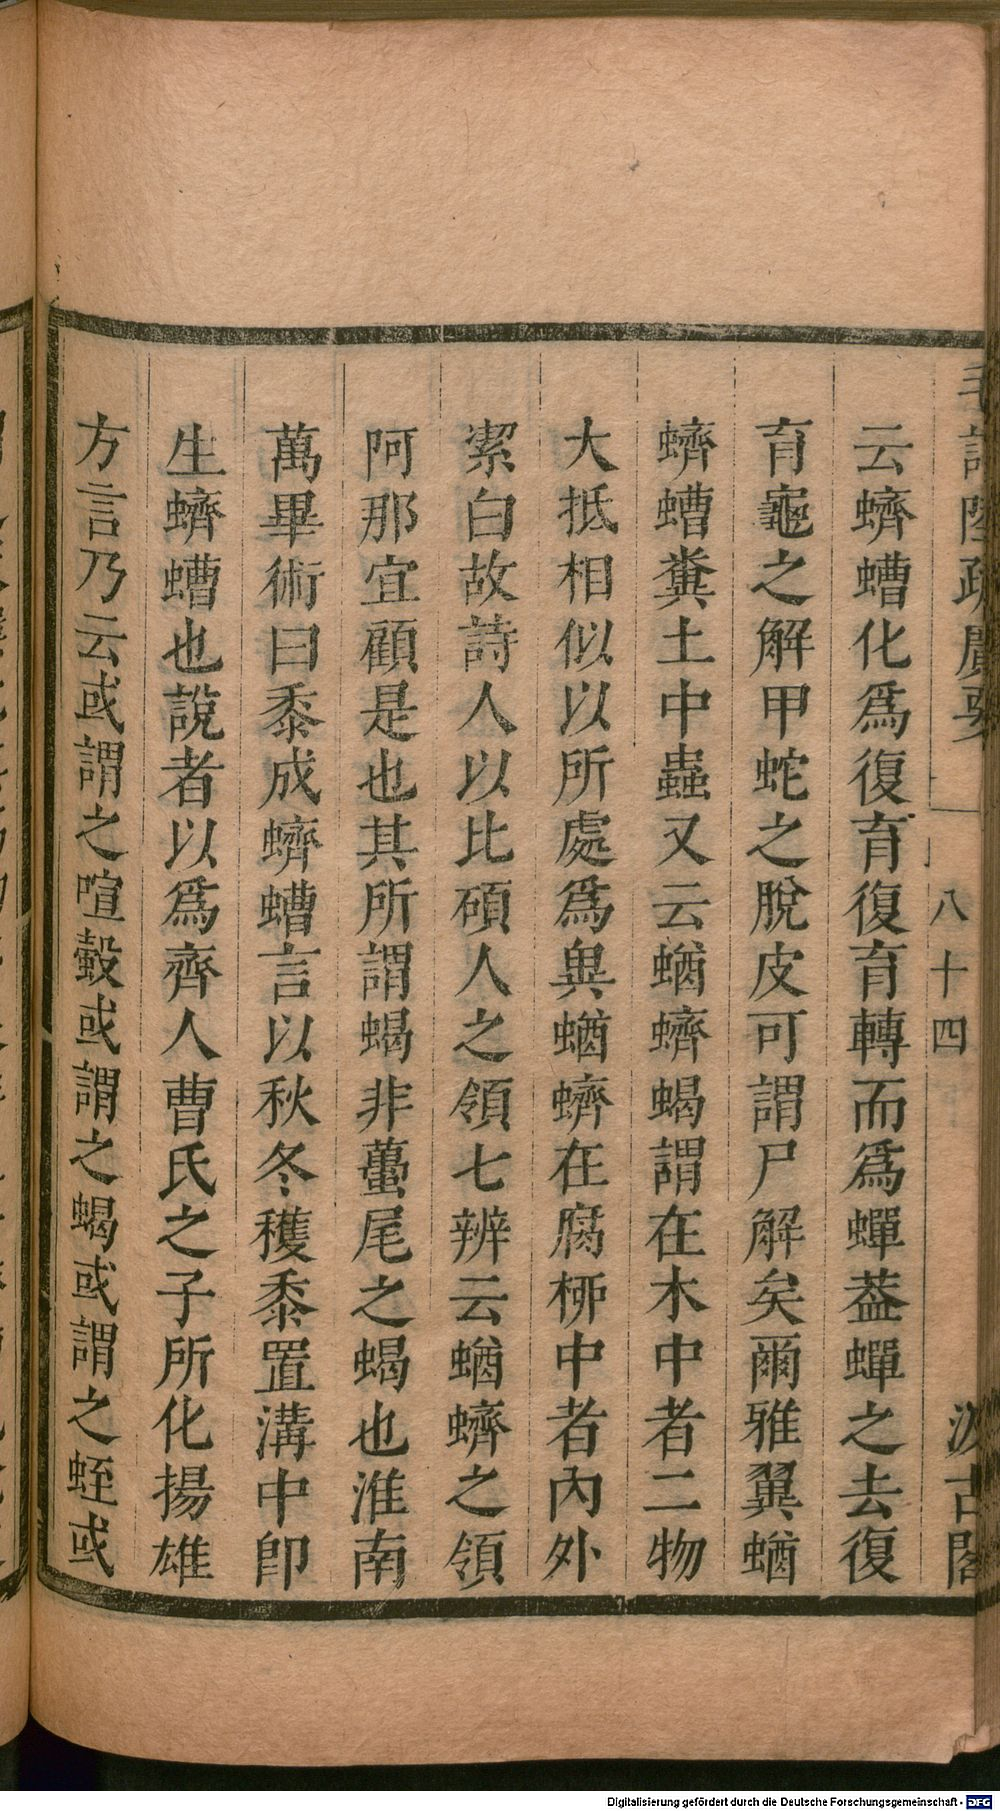 毛詩陸疏廣要
八十四
汲古閣
云蠐螬化爲復育復育轉而爲蟬葢蟬之去復
育龜之解甲蛇之脫皮可謂尸解矣爾雅翼蝤
蠐螬糞土中蟲又云蝤蠐蝎謂在木中者二物
大抵相似以所處爲異蝤蠐在腐柳中者內外
潔白故詩人以比碩人之領七辨云蝤蠐之領
阿那宜顧是也其所謂蝎非蠆尾之蝎也淮南
萬畢術曰黍成蠐螬言以秋冬穫黍置溝中卽
生蠐螬也說者以爲齊人曹氏之子所化揚雄
方言乃云或謂之喧穀或謂之蝎或謂之蛭或
Digitalisierung gefördert durch die Deutsche Forschungsgemeinschaft - DFG